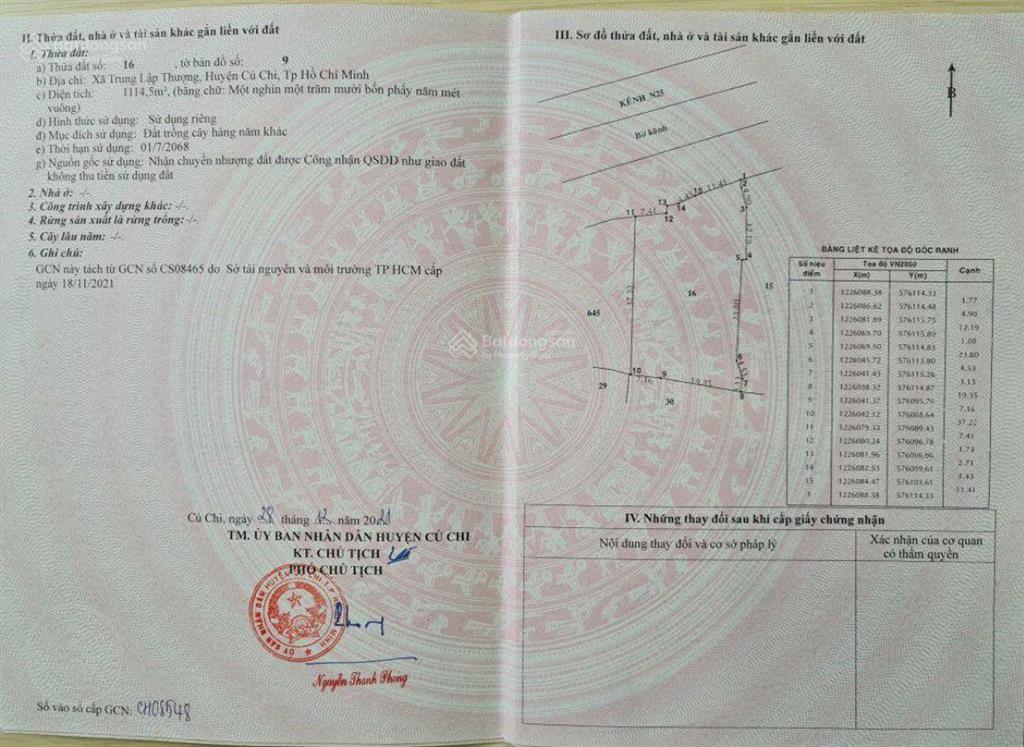 II. Thửa đất, nhà ở và tài sản khác gắn liền với đất
1. Thửa đất:
a) Thửa đất số: 16 , tờ bản đồ số: 9
b) Địa chỉ: Xã Trung Lập Thượng, Huyện Củ Chi, Tp Hồ Chí Minh
c) Diện tích: 1114,5m², (bằng chữ: Một nghìn một trăm mười bốn phẩy năm mét
vuông)
d) Hình thức sử dụng: Sử dụng riêng
đ) Mục đích sử dụng: Đất trồng cây hàng năm khác
e) Thời hạn sử dụng: 01/7/2068
g) Nguồn gốc sử dụng: Nhận chuyển nhượng đất được Công nhận QSDĐ như giao đất
không thu tiền sử dụng đất
2. Nhà ở: -/-
3. Công trình xây dựng khác: -/-
4. Rừng sản xuất là rừng trồng: -/-
5. Cây lâu năm: -/-
6. Ghi chú:
GCN này tách từ GCN số CS08465 do Sở tài nguyên và môi trường TP HCM cấp
ngày 18/11/2021
Củ Chi, ngày 28 tháng 12 năm 2021
TM. ỦY BAN NHÂN DÂN HUYỆN CỦ CHI
KT. CHỦ TỊCH
PHÓ CHỦ TỊCH
Nguyễn Thanh Phong
Số vào sổ cấp GCN: CH08548
III. Sơ đồ thửa đất, nhà ở và tài sản khác gắn liền với đất
B
KÊNH N25
Bờ kênh
1
2
11.41
15
4.45
4.90
13
14
3
11
7.41
12
12.19
5
4
37.22
23.80
16
15
645
Batdongsan
by PropertyGuru
6
4.53
10
7.16
9
19.35
7
8
29
30
BẢNG LIỆT KÊ TỌA ĐỘ GÓC RANH
Số hiệu điểm
Tọa độ VN2000
Cạnh
X(m)
Y(m)
1 1226088.38 576114.33
1.77
2 1226086.62 576114.48
4.90
3 1226081.89 576115.75
12.19
4 1226069.70 576115.89
1.08
5 1226069.50 576114.83
23.80
6 1226045.72 576113.80
4.53
7 1226041.43 576115.26
3.13
8 1226038.32 576114.87
19.35
9 1226041.32 576095.76
7.16
10 1226042.32 576088.64
37.22
11 1226079.53 576089.43
7.41
12 1226080.24 576096.78
1.73
13 1226081.96 576096.96
2.71
14 1226082.53 576099.61
4.45
15 1226084.47 576103.61
11.41
1 1226088.38 576114.33
IV. Những thay đổi sau khi cấp giấy chứng nhận
Nội dung thay đổi và cơ sở pháp lý
Xác nhận của cơ quan
có thẩm quyền